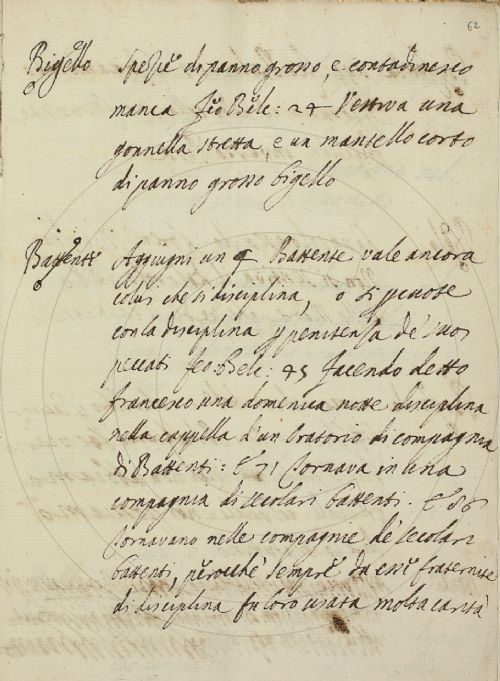 62
Bigello Spezie di panno grosso, e contadinesco
manca feo Bele: 24 Vestiva una
gonnella stretta e un mantello corto
di panno grosso bigello
Battenti Aggiugni un § Battente vale ancora
colui che si disciplina, o si percuote
con la disciplina p penitenza de' suoi
peccati feo: Bele: 45 facendo detto
francesco una domenica notte disciplina
nella cappella d'un Oratorio di compagnia
di Battenti: E 71 Tornava in una
compagnia di secolari battenti. E 86
Tornavano nelle compagnie de' secolari
battenti, perocché sempre da esse fraternite
di disciplina fu loro usata molta carità